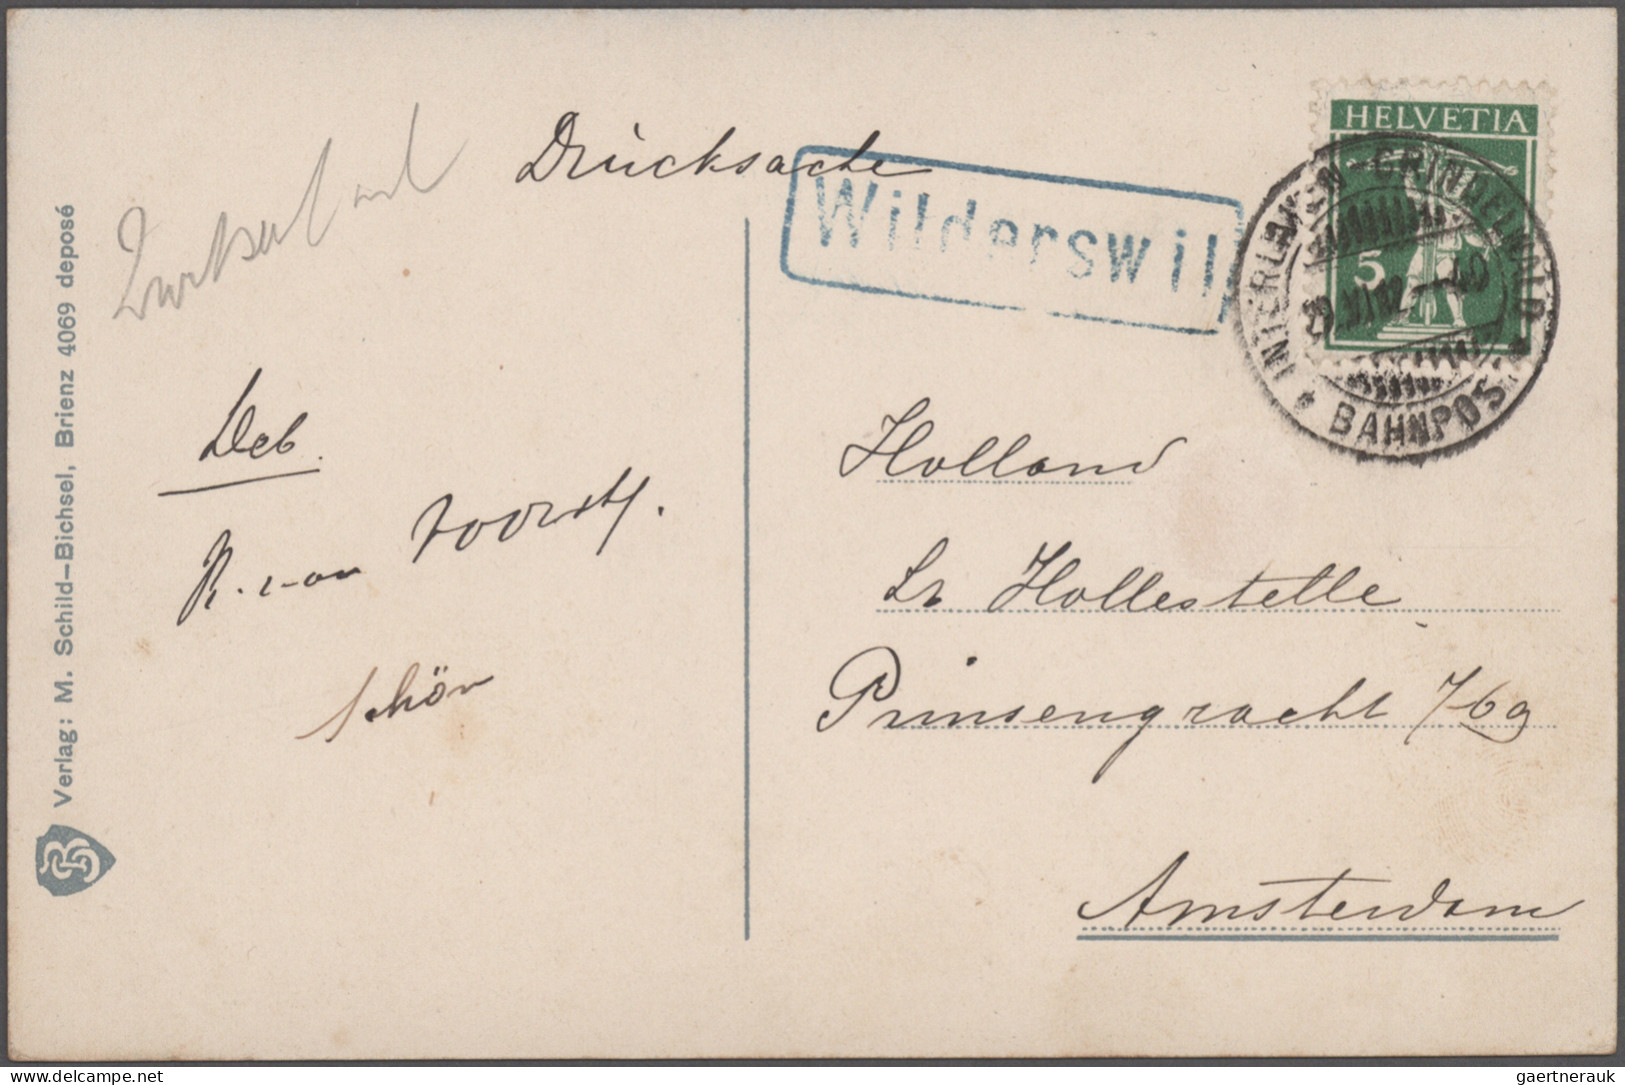 Drucksache
Wilderswil
HELVETIA
5
INTERLAKEN-GRINDELWALD
BAHNPOST
Deb
R. van Voorst.
schön
Holland
Hollestelle
Prinsengracht 769
Amsterdam
Verlag: M. Schild-Bichsel, Brienz 4069 deposé
gaertnerauk